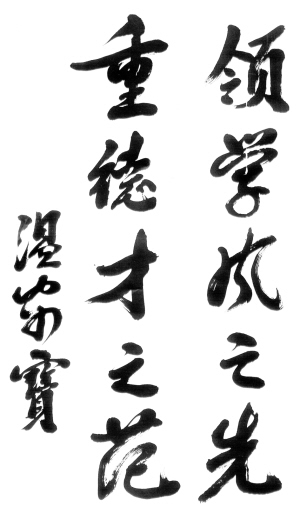 领学风之先
重德才之范
温家寶